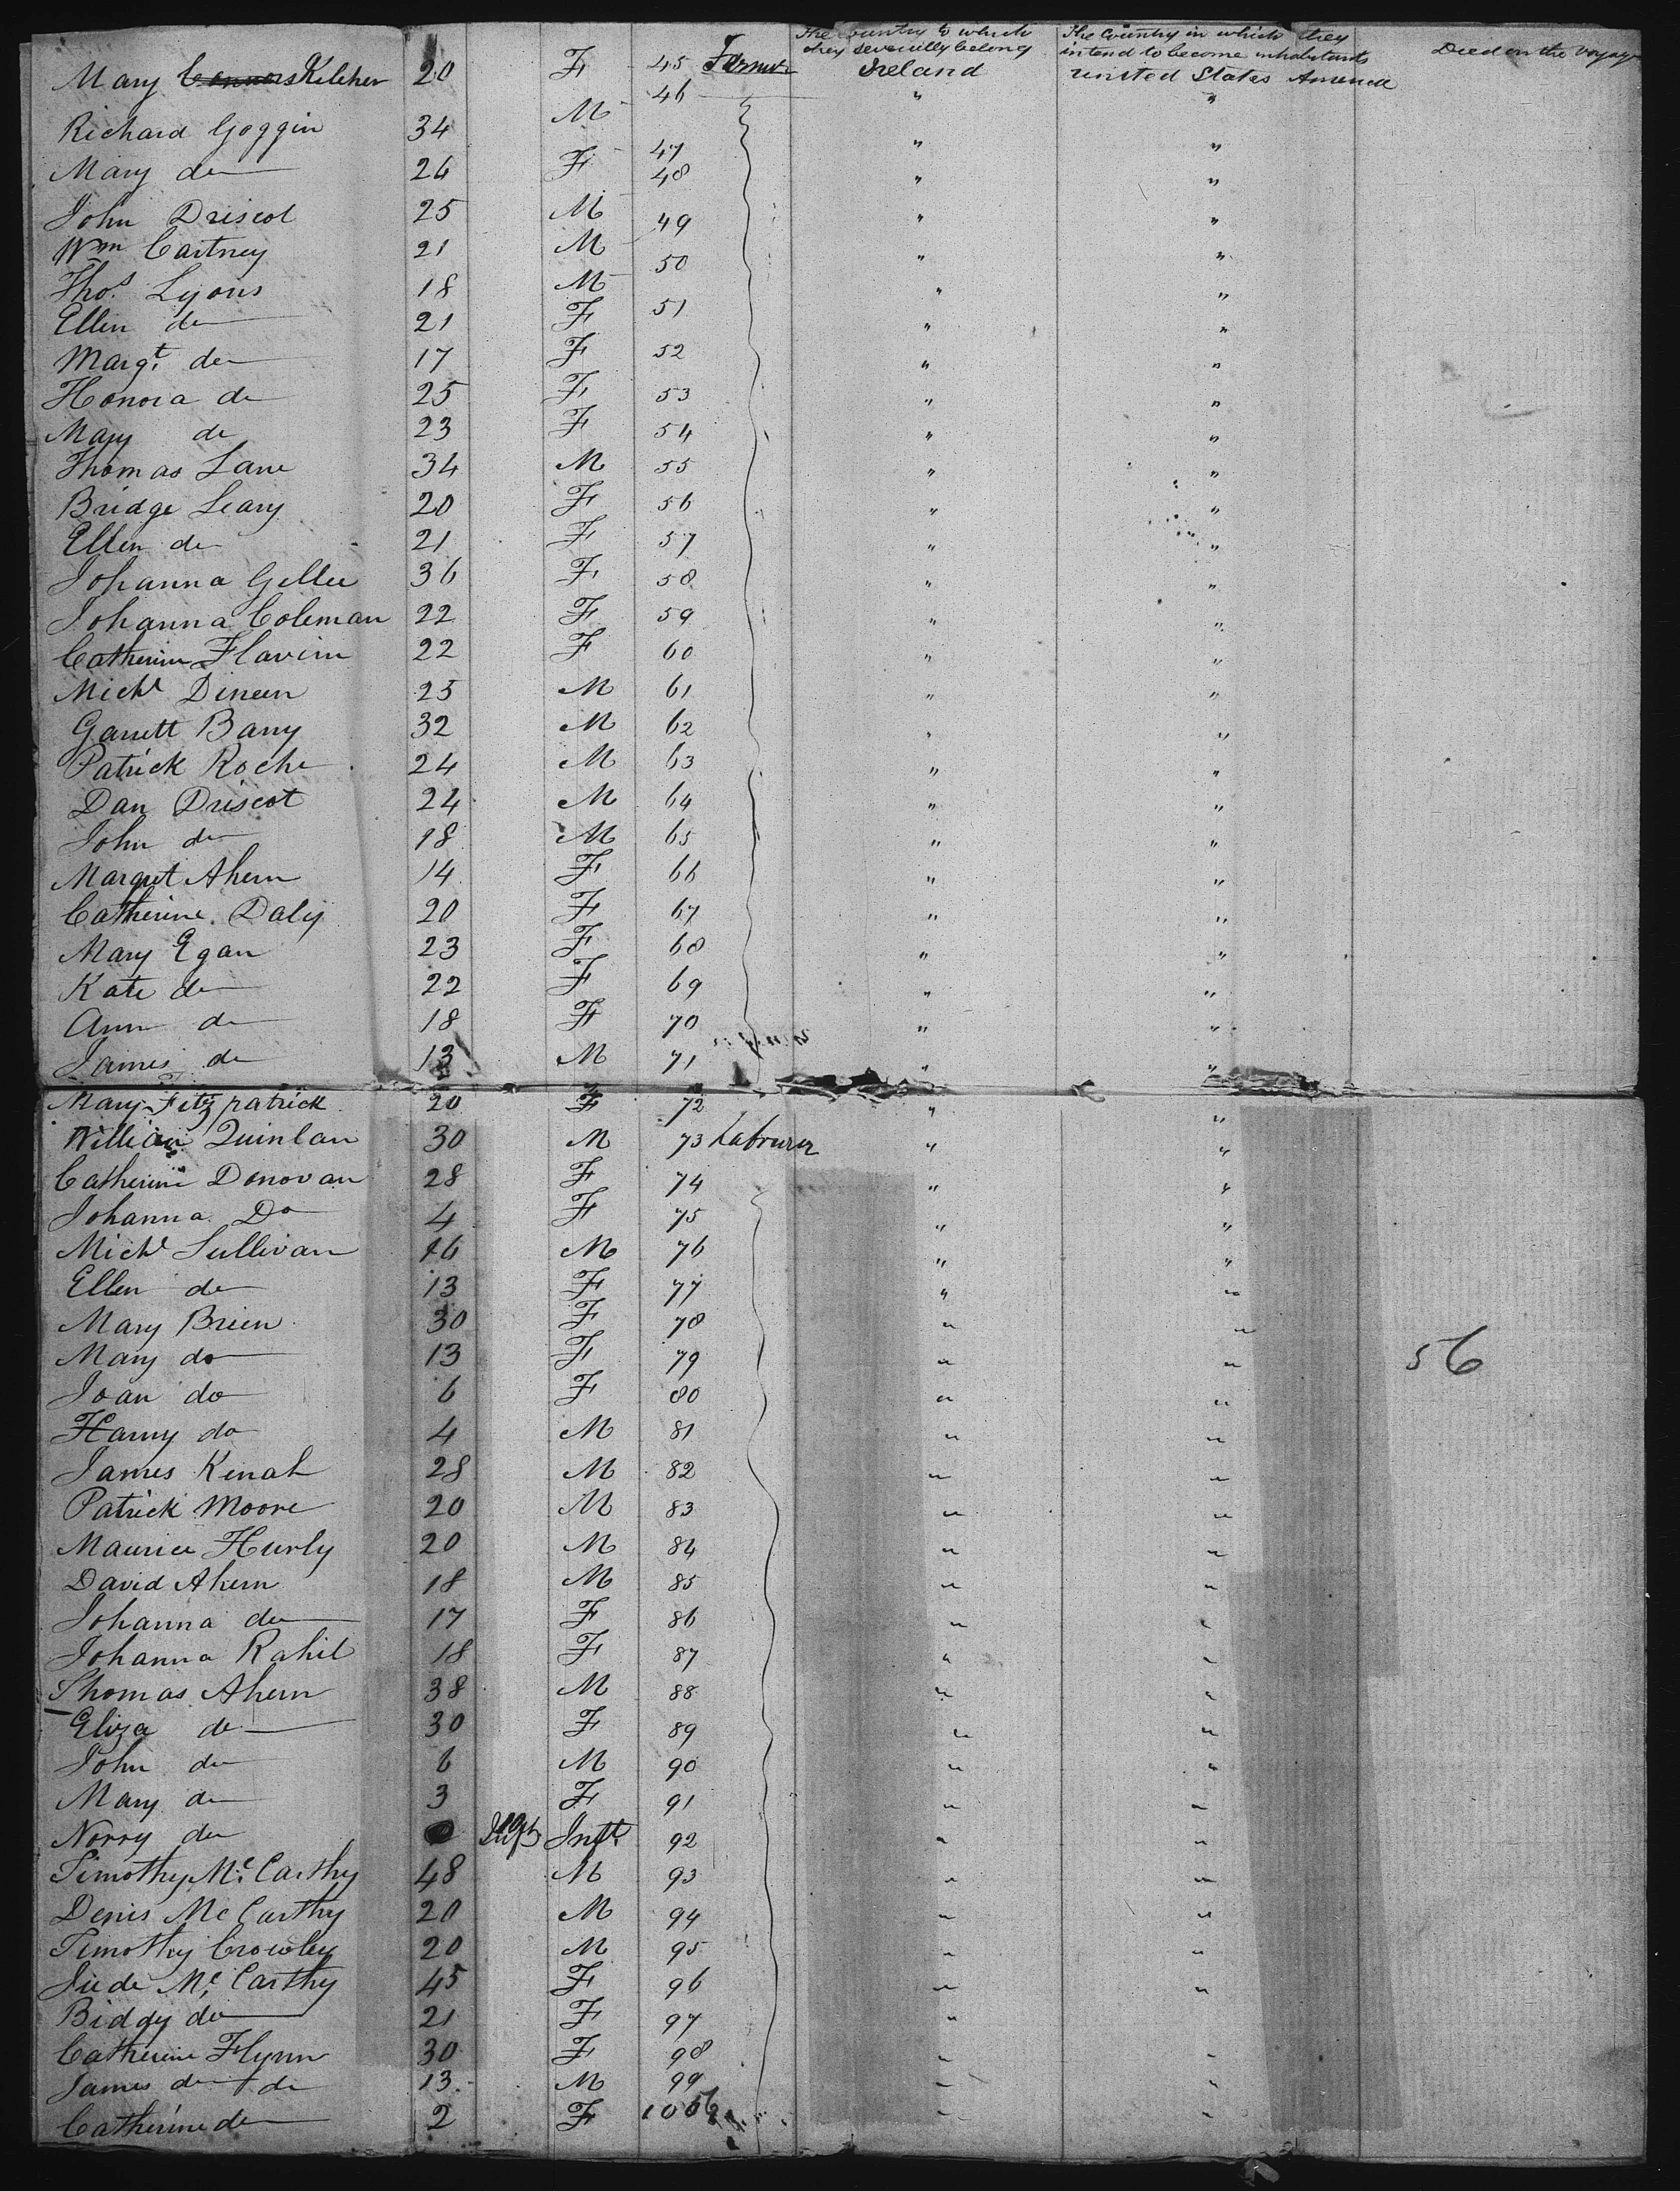 The Country to which they severilly belong
The Country in which they intend to become inhabitants
Died on the Voyage
Mary Connors Kelcher 20 F 45 Farmer Ireland United States America
Richard Goggin 34 M 46 " "
Mary do 26 F 47 " "
John Driscol 25 M 48 " "
Wm Cartney 21 M 49 " "
Thos. Lyons 18 M 50 " "
Ellen do 21 F 51 " "
Margt. do 17 F 52 " "
Honora do 25 F 53 " "
Mary do 23 F 54 " "
Thomas Lane 34 M 55 " "
Bridge Leary 20 F 56 " "
Ellen do 21 F 57 " "
Johanna Gellee 36 F 58 " "
Johanna Coleman 22 F 59 " "
Catherine Flavin 22 F 60 " "
Michl Dineen 25 M 61 " "
Garrett Barry 32 M 62 " "
Patrick Roche 24 M 63 " "
Dan Driscot 24 M 64 " "
John do 18 M 65 " "
Margret Ahern 14 F 66 " "
Catherine Daly 20 F 67 " "
Mary Egan 23 F 68 " "
Kate do 22 F 69 " "
Ann do 18 F 70 " "
James do 13 M 71 " "
Mary Fitzpatrick 20 F 72 " "
William Quinlan 30 M 73 Labourer " "
Catherine Donovan 28 F 74 " "
Johanna Do 4 F 75 " "
Michl Sullivan 16 M 76 " "
Ellen do 13 F 77 " "
Mary Brien 30 F 78 " "
Mary do 13 F 79 " " 56
Joan do 6 F 80 " "
Harry do 4 M 81 " "
James Kenah 28 M 82 " "
Patrick Moore 20 M 83 " "
Maurice Hurly 20 M 84 " "
David Ahern 18 M 85 " "
Johanna do 17 F 86 " "
Johanna Rahil 18 F 87 " "
Thomas Ahern 38 M 88 " "
Eliza do 30 F 89 " "
John do 6 M 90 " "
Mary do 3 F 91 " "
Norry do Inft. 92 " "
Timothy McCarthy 48 M 93 " "
Denis McCarthy 20 M 94 " "
Timothy Crowley 20 M 95 " "
Jude McCarthy 45 F 96 " "
Biddy do 21 F 97 "
Catherine Flynn 30 F 98 " "
James do do 13 M 99 " "
Catherine do 2 F 100 " "